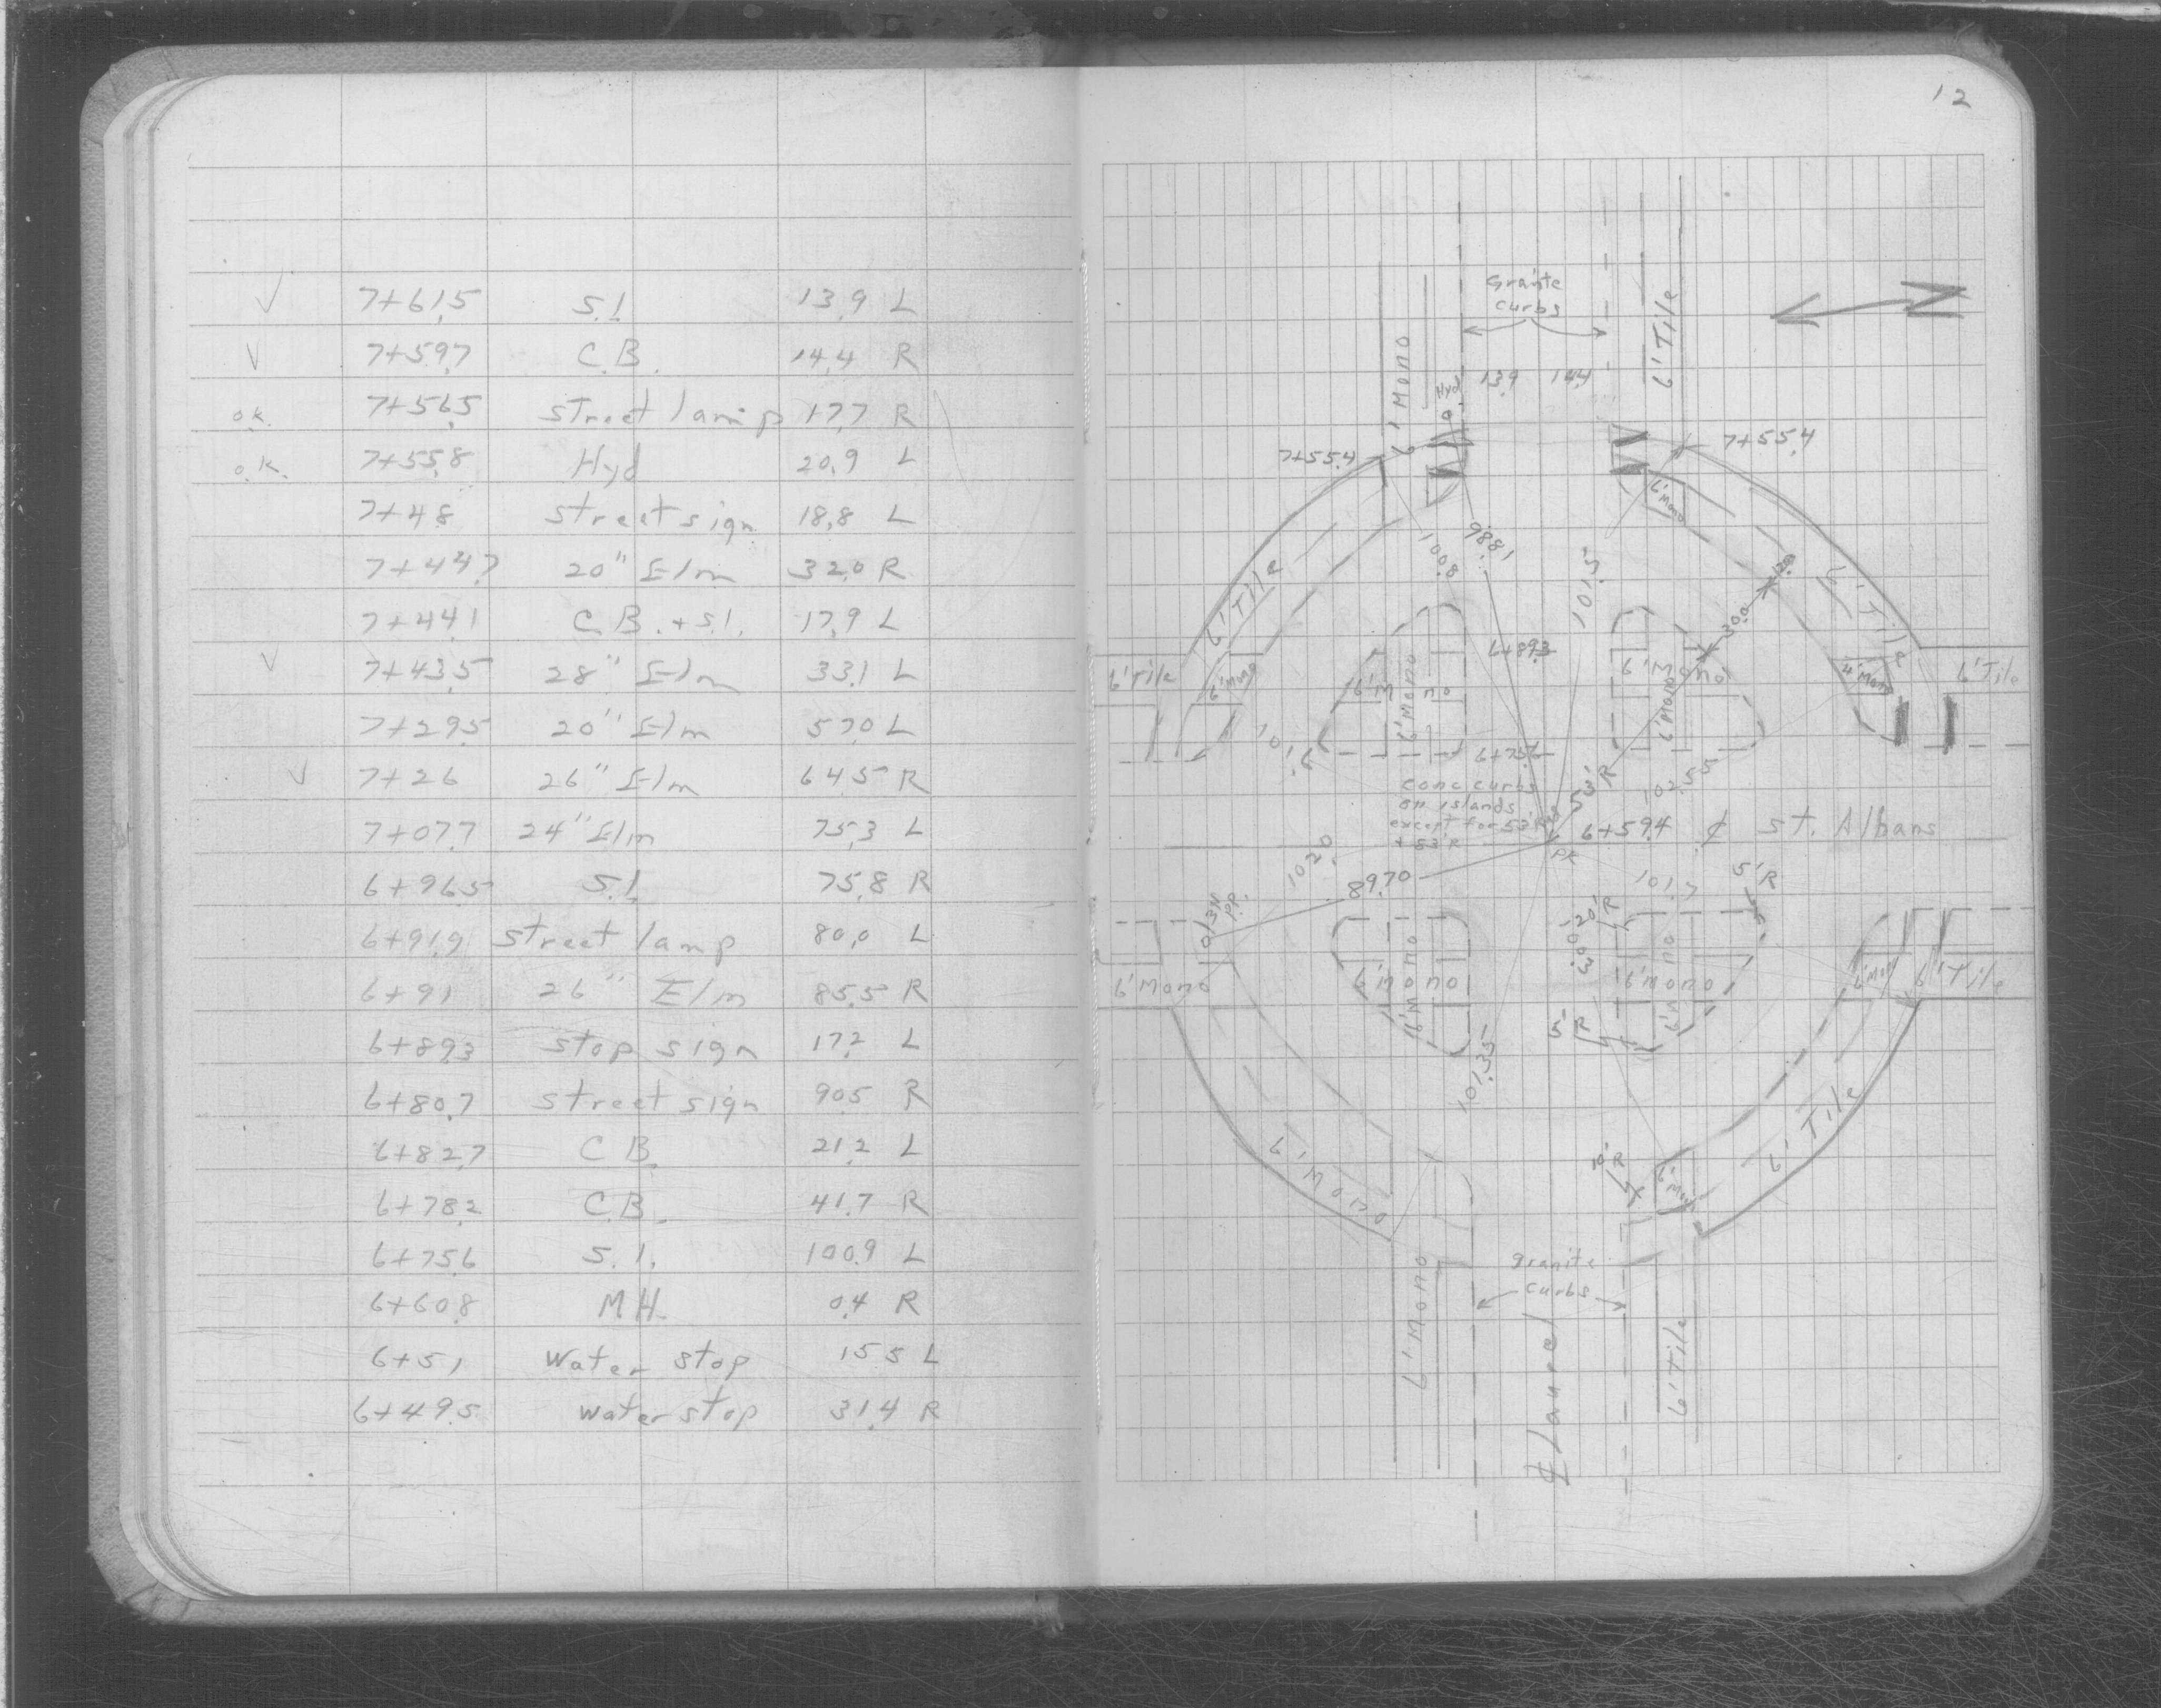 ✓ 7+61.5 S.I. 13.9 L
✓ 7+59.7 C.B. 14.4 R
o.k. 7+56.5 street lamp 17.7 R
o.k. 7+55.8 Hyd 20.9 L
7+48 street sign 18.8 L
7+44.7 20" Elm 32.0 R
7+44.1 C.B. + S.I. 17.9 L
✓ 7+43.5 28" Elm 33.1 L
7+29.5 20" Elm 57.0 L
✓ 7+26 26" Elm 64.5 R
7+07.7 24" Elm 75.3 L
6+96.5 S.I. 75.8 R
6+91.9 street lamp 80.0 L
6+91 26" Elm 85.5 R
6+89.3 stop sign 17.2 L
6+80.7 street sign 90.5 R
6+82.7 C.B. 21.2 L
6+78.2 C.B. 41.7 R
6+75.6 S.I. 100.9 L
6+60.8 M.H. 0.4 R
6+51 Water stop 15.5 L
6+49.5 water stop 31.4 R
12
Granite
curbs
6' Mono
6' Tile
N
Hyd
13.9 14.4
7+55.4
7+55.4
6' Mono
98.81
100.8
101.5
12.0
30.0
6' Tile
6' Tile
6+89.3
6' Tile
6' Mono
6' Mono
6' Mono
6' Mono
6' Mono
4' Mono
6' Tile
6+75.6
conc curbs
on islands
except for 53' Rad
+ 53' R
53' R
102.55
6+59.4 ₵ St. Albans
PK
102.0
89.70
101.7
5' R
P.P.
20' R
30.0
6' Mono
6' Mono
6' Mono
6' mono
6' Mono
6' Mono
6' Tile
5' R
101.35
6' Mono
10' R
6' Mono
6' Tile
granite
curbs
6' Mono
₵ Laurel
6' Tile